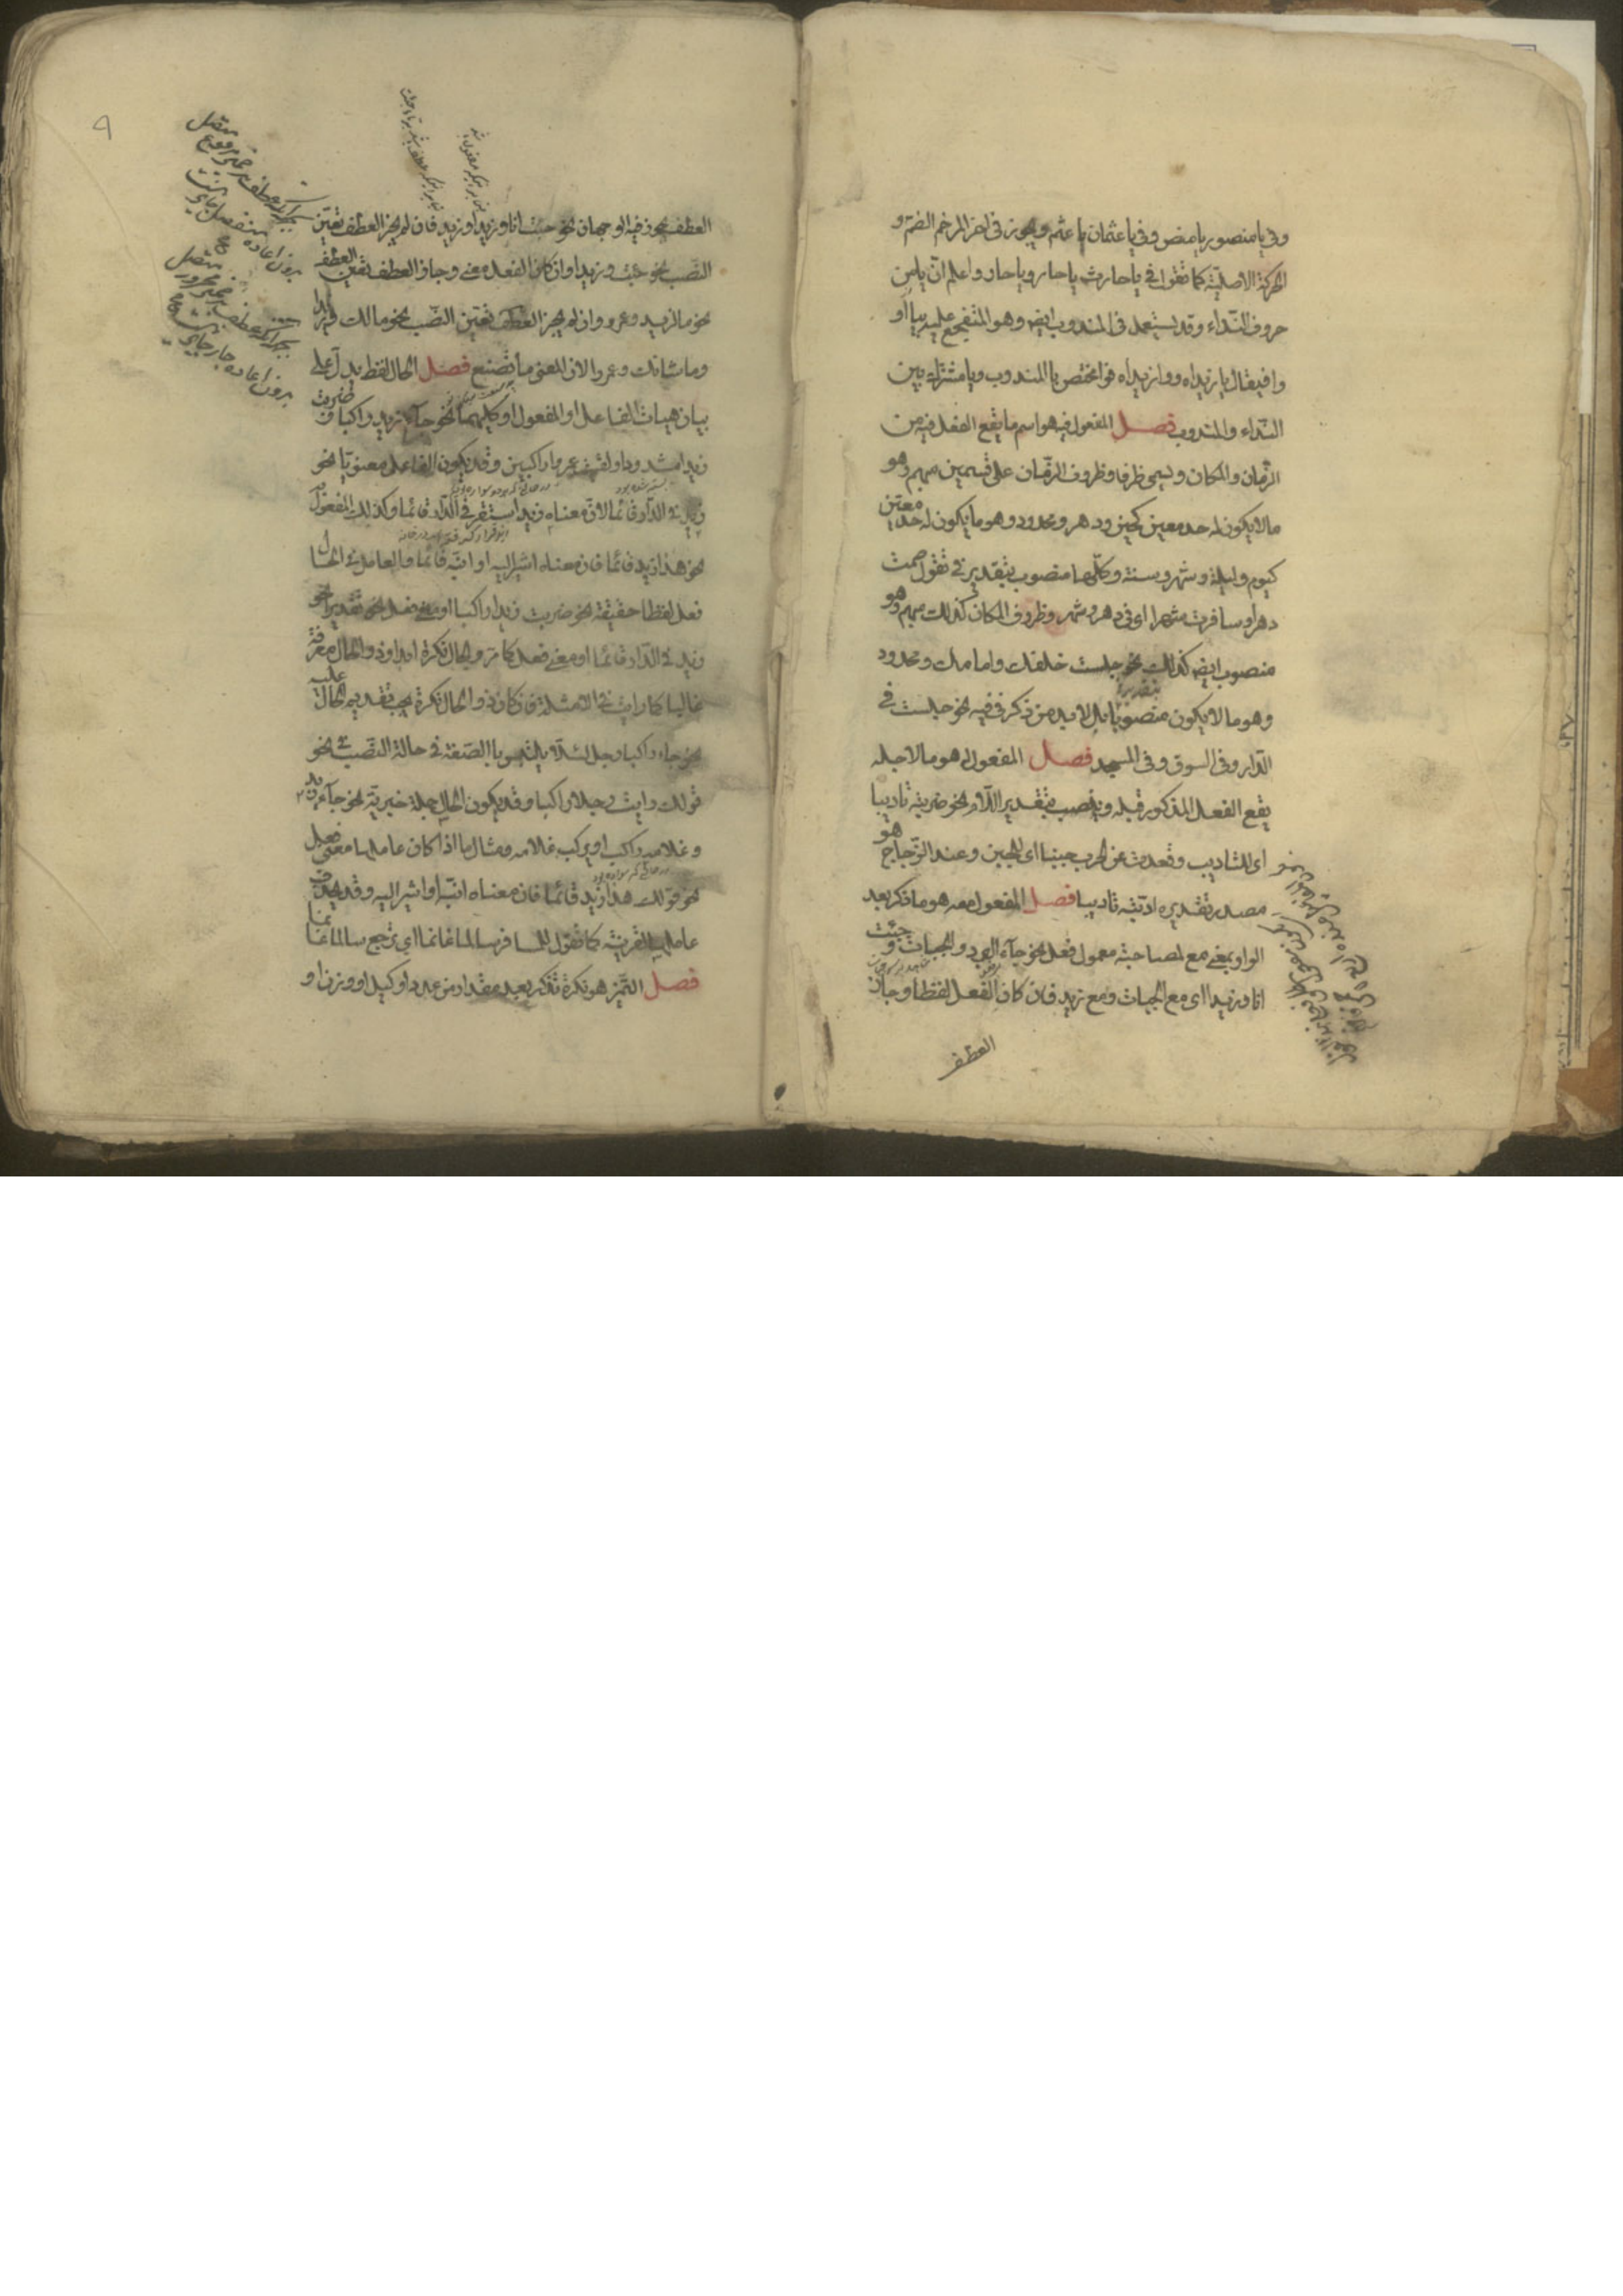 وفى يا منصور يا منص وفى يا عثمان يا عثم ويجوز فى اخر المرخم الضم و
الحركة الاصلية كما تقول فى يا حارث يا حار ويا حار واعلم ان يا من
حروف النداء وقد يستعمل فى المندوب ايضا وهو المتفجع عليه بيا او
وا فيقال يا زيداه ووا زيداه فوا مختص بالمندوب ويا مشترك بين
النداء والمندوب فصل المفعول فيه هو اسم ما يقع الفعل فيه من
الزمان والمكان ويسمى ظرفا وظروف الزمان على قسمين مبهم وهو
ما لا يكون له حد معين كحين ودهر ومحدود وهو ما يكون له حد معين
كيوم وليلة وشهر وسنة وكلها منصوب بتقدير فى تقول صمت
دهرا وسافرت شهرا اى فى دهر وشهر وظروف المكان كذلك مبهم وهو
منصوب ايضا كذلك نحو جلست خلفك وامامك ومحدود
وهو ما لا يكون منصوبا بتقدير فى بل لا بد من ذكر فى فيه نحو جلست فى
الدار وفى السوق وفى المسجد فصل المفعول له هو ما لاجله
يقع الفعل المذكور قبله وينصب بتقدير اللام نحو ضربته تاديبا
اى للتاديب وقعدت عن الحرب جبنا اى للجبن وعند الزجاج هو
مصدر تقديره ادبته تاديبا فصل المفعول معه هو ما ذكر بعد
الواو بمعنى مع لمصاحبته معمول فعل نحو جاء البرد والجبات و جئت
انا وزيدا اى مع الجبات ومع زيد فان كان الفعل لفظا وجاز
العطف
٩
العطف يجوز فيه الوجهان نحو جئت انا وزيدا وزيد فان لم يجز العطف تعين
النصب نحو جئت وزيدا وان كان الفعل معنى وجاز العطف تعين العطف
نحو ما لزيد وعمرو وان لم يجز العطف تعين النصب نحو ما لك وزيدا
وما شانك وعمروا لان المعنى ما تصنع فصل الحال لفظ يدل على
بيان هيات الفاعل او المفعول او كليهما نحو جاء زيد راكبا و ضربت
زيدا مشدودا ولقيت عمروا راكبين وقد يكون الفاعل معنويا نحو
زيد فى الدار قائما لان معناه زيد استقر فى الدار قائما وكذلك المفعول
نحو هذا زيد قائما فان معناه اشير اليه او انبه قائما والعامل فى الحال
فعل لفظا حقيقة نحو ضربت زيدا راكبا او معنى فعل نحو تقديرا نحو
زيد فى الدار قائما او معنى فعل كما مر والحال نكرة ابدا وذو الحال معرفة
غالبا كما رايت فى الامثلة فان كان ذو الحال نكرة يجب تقديم الحال عليه
نحو جاء راكبا رجل لئلا يلتبس بالصفة فى حالة النصب فى نحو
قولك رايت رجلا راكبا وقد يكون الحال جملة خبرية نحو جاء زيد
وغلامه راكب او يركب غلامه ومثال ما اذا كان عاملها معنى فعل
نحو قولك هذا زيد قائما فان معناه انبه او اشير اليه وقد يحذف
عاملها لقرينة كما تقول للمسافر سالما غانما اى ترجع سالما غانما
فصل التميز هو نكرة تذكر بعد مقدار من عدد او كيل او وزن او